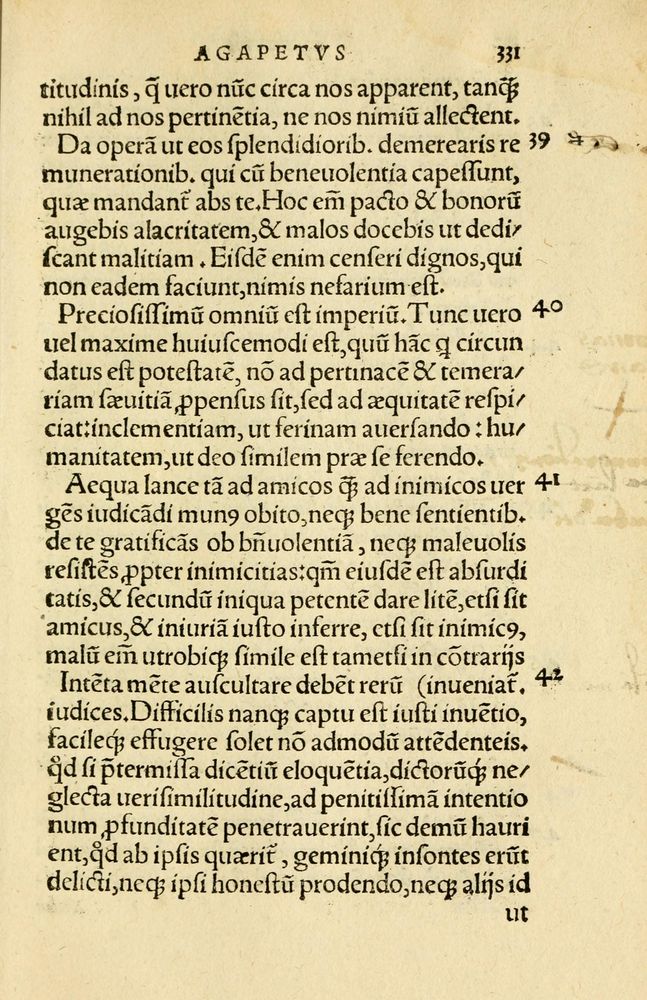 AGAPETVS 331
titudinis, q̃ uero nũc circa nos apparent, tanq̃ꝫ
nihil ad nos pertinẽtia, ne nos nimiũ allectent.
Da operã ut eos ſplendidiorib. demerearis re 39
munerationib. qui cũ beneuolentia capeſſunt,
quæ mandant̃ abs te. Hoc em̃ pacto & bonorũ
augebis alacritatem, & malos docebis ut dedi/
ſcant malitiam. Eiſdẽ enim cenſeri dignos, qui
non eadem faciunt, nimis nefarium eſt.
Precioſiſſimũ omniũ eſt imperiũ. Tunc uero 40
uel maxime huiuſcemodi eſt, quũ hãc ꝗ circun
datus eſt poteſtatẽ, nõ ad pertinacẽ & temera/
riam ſæuitiã ꝓpenſus ſit, ſed ad æquitatẽ reſpi/
ciat: inclementiam, ut ferinam auerſando: hu/
manitatem, ut deo ſimilem præ ſe ferendo.
Aequa lance tã ad amicos q̃ꝫ ad inimicos uer 41
gẽs iudicãdi munꝯ obito, neqꝫ bene ſentientib.
de te gratificãs ob bñuolentiã, neqꝫ maleuolis
reſiſtẽs ꝓpter inimicitias: qm̃ eiuſdẽ eſt abſurdi
tatis, & ſecundũ iniqua petentẽ dare litẽ, etſi ſit
amicus, & iniuriã iuſto inferre, etſi ſit inimicꝯ,
malũ em̃ utrobiqꝫ ſimile eſt tametſi in cõtrarijs
Intẽta mẽte auſcultare debẽt rerũ (inueniat̃. 42
iudices. Difficilis nanqꝫ captu eſt iuſti inuẽtio,
facileqꝫ effugere ſolet nõ admodũ attẽdenteis.
qđ ſi p̃termiſſa dicẽtiũ eloquẽtia, dictorũqꝫ ne/
glecta ueriſimilitudine, ad penitiſſimã intentio
num ꝓfunditatẽ penetrauerint, ſic demũ hauri
ent, qđ ab ipſis quærit̃, geminiqꝫ inſontes erũt
delicti, neqꝫ ipſi honeſtũ prodendo, neqꝫ alijs id
ut